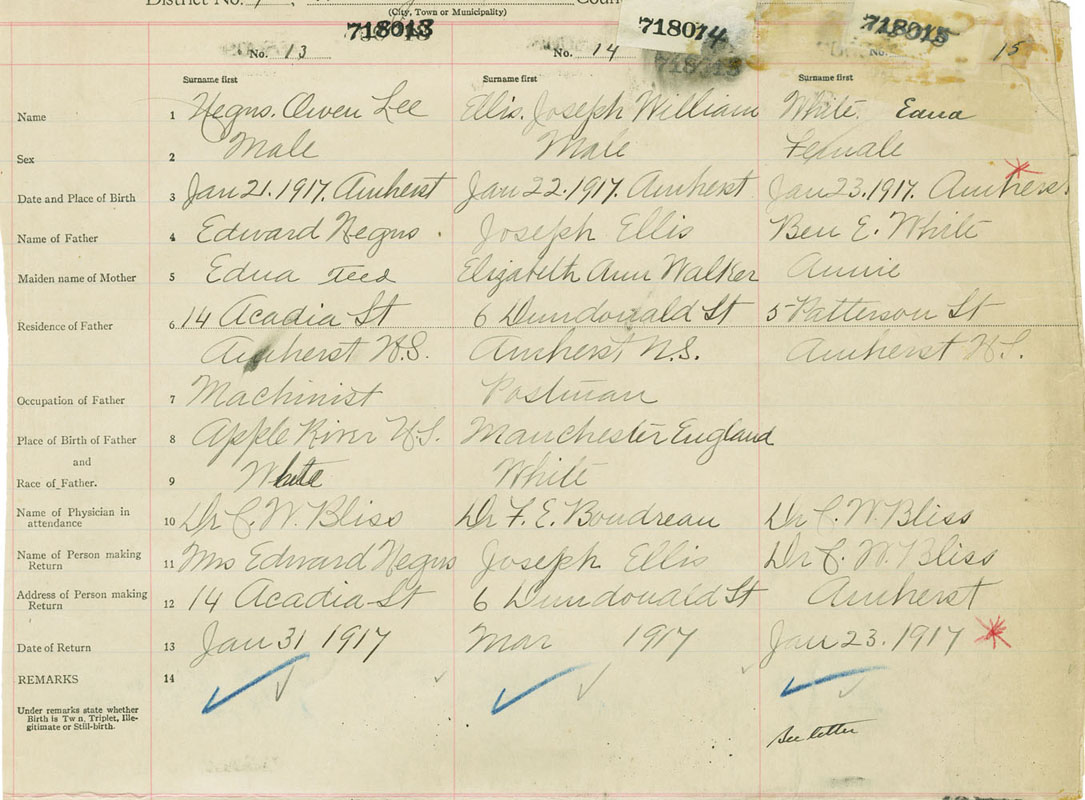 District No.
(City, Town or Municipality)
718013 718014 718015
718013
No. 13 No. 14 No. 15
Surname first Surname first Surname first
Name 1 Negus. Owen Lee Ellis. Joseph William White. Edna
Sex 2 Male Male Female
Date and Place of Birth 3 Jan 21. 1917. Amherst Jan 22. 1917. Amherst Jan 23. 1917. Amherst
Name of Father 4 Edward Negus. Joseph Ellis Ben E. White
Maiden name of Mother 5 Edna Teed Elizabeth Ann Walker Annie
Residence of Father 6 14 Acadia St 6 Dundonald St 5 Patterson St
Amherst N.S. Amherst N.S. Amherst N.S.
Occupation of Father 7 Machinist Postman
Place of Birth of Father 8 Apple River N.S. Manchester England
and
Race of Father. 9 White White
Name of Physician in
attendance 10 Dr C. W. Bliss Dr F. E. Boudreau Dr C. W. Bliss
Name of Person making
Return 11 Mrs Edward Negus Joseph Ellis Dr C. W. Bliss
Address of Person making
Return 12 14 Acadia St 6 Dundonald St Amherst
Date of Return 13 Jan 31 1917 Mar 1917 Jan 23. 1917
REMARKS 14
Under remarks state whether
Birth is Twn, Triplet, Ille-
gitimate or Still-birth.
See letter